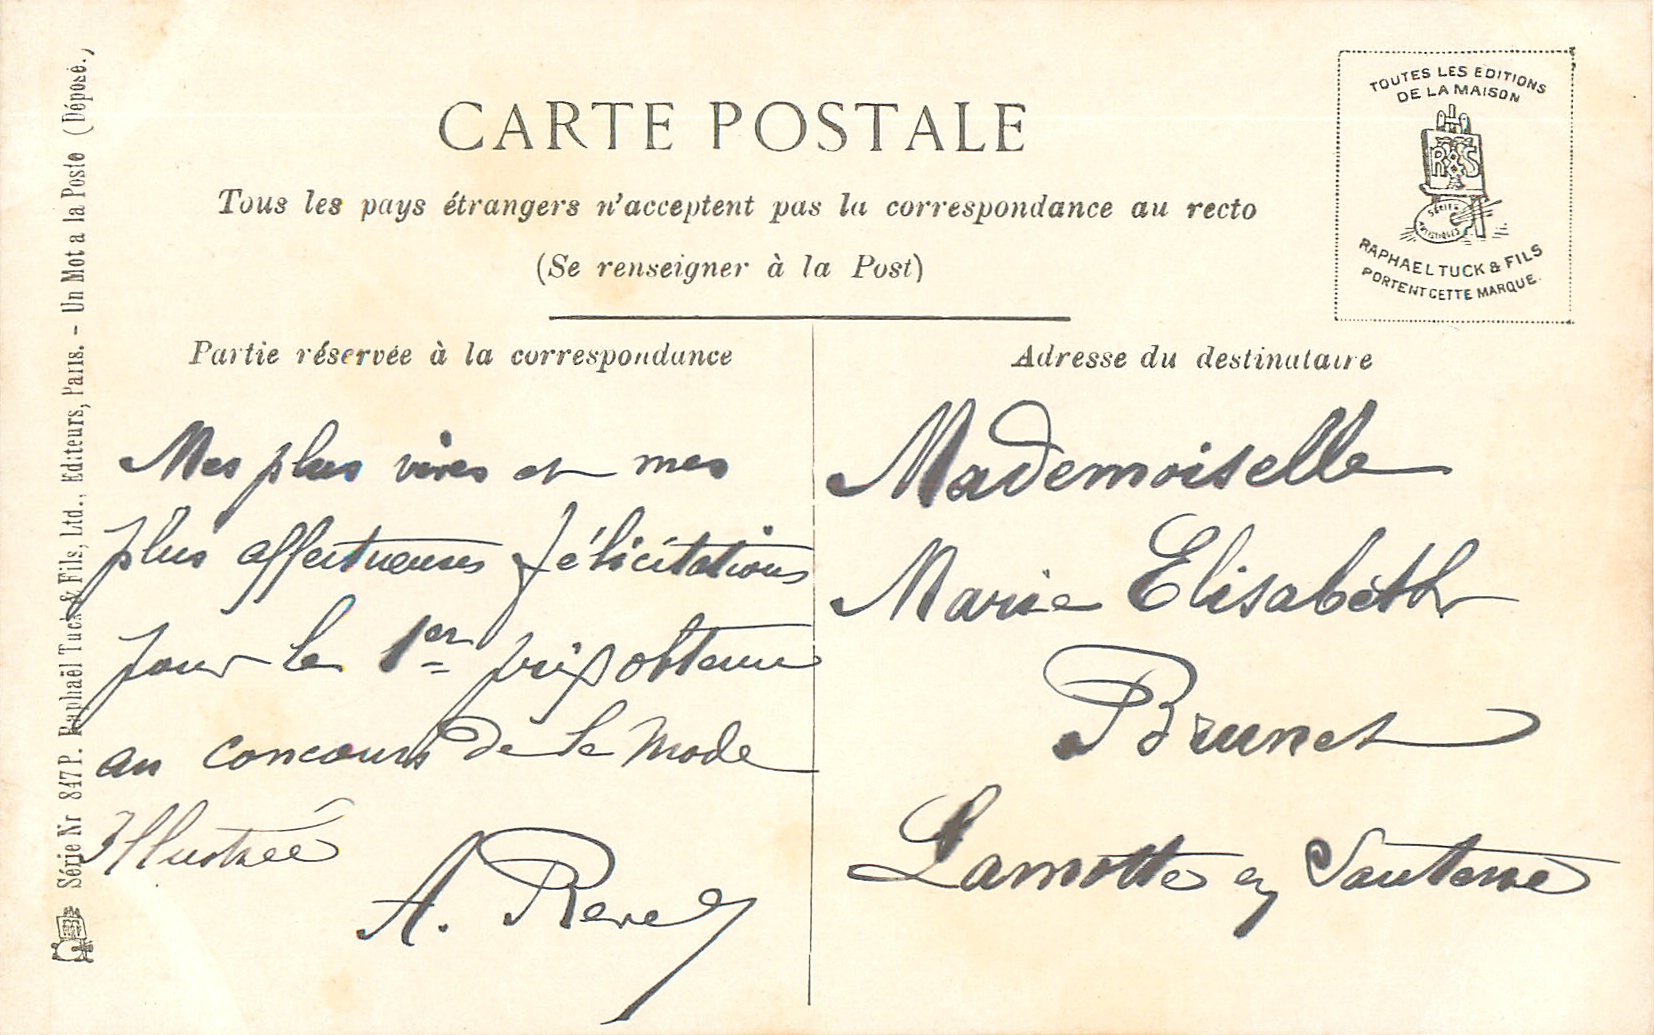 CARTE POSTALE
Tous les pays étrangers n'acceptent pas la correspondance au recto
(Se renseigner à la Post)
TOUTES LES EDITIONS
DE LA MAISON
SÉRIE
ARTISTIQUES
RAPHAEL TUCK & FILS
PORTENT CETTE MARQUE.
Partie réservée à la correspondance
Mes plus vives et mes
plus affectueuses félicitations
pour le 1er prix obtenu
au concours de la Mode
Illustrée
A.
Adresse du destinataire
Mademoiselle
Marie Elisabeth
Brunet
Lamotte en Santerre
Série Nr 847 P. Raphaël Tuck & Fils, Ltd., Editeurs, Paris. - Un Mot a la Poste (Déposé.)